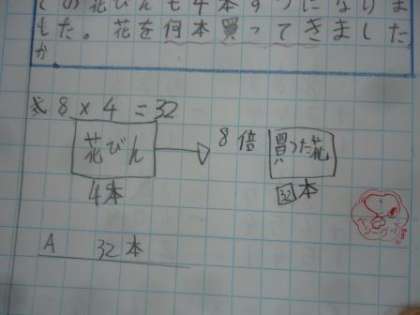 の花びんも4本ずつになりま
した。花を何本買ってきました
か。
式 8×4=32
花びん 8倍 買った花
4本 32本
A 32本